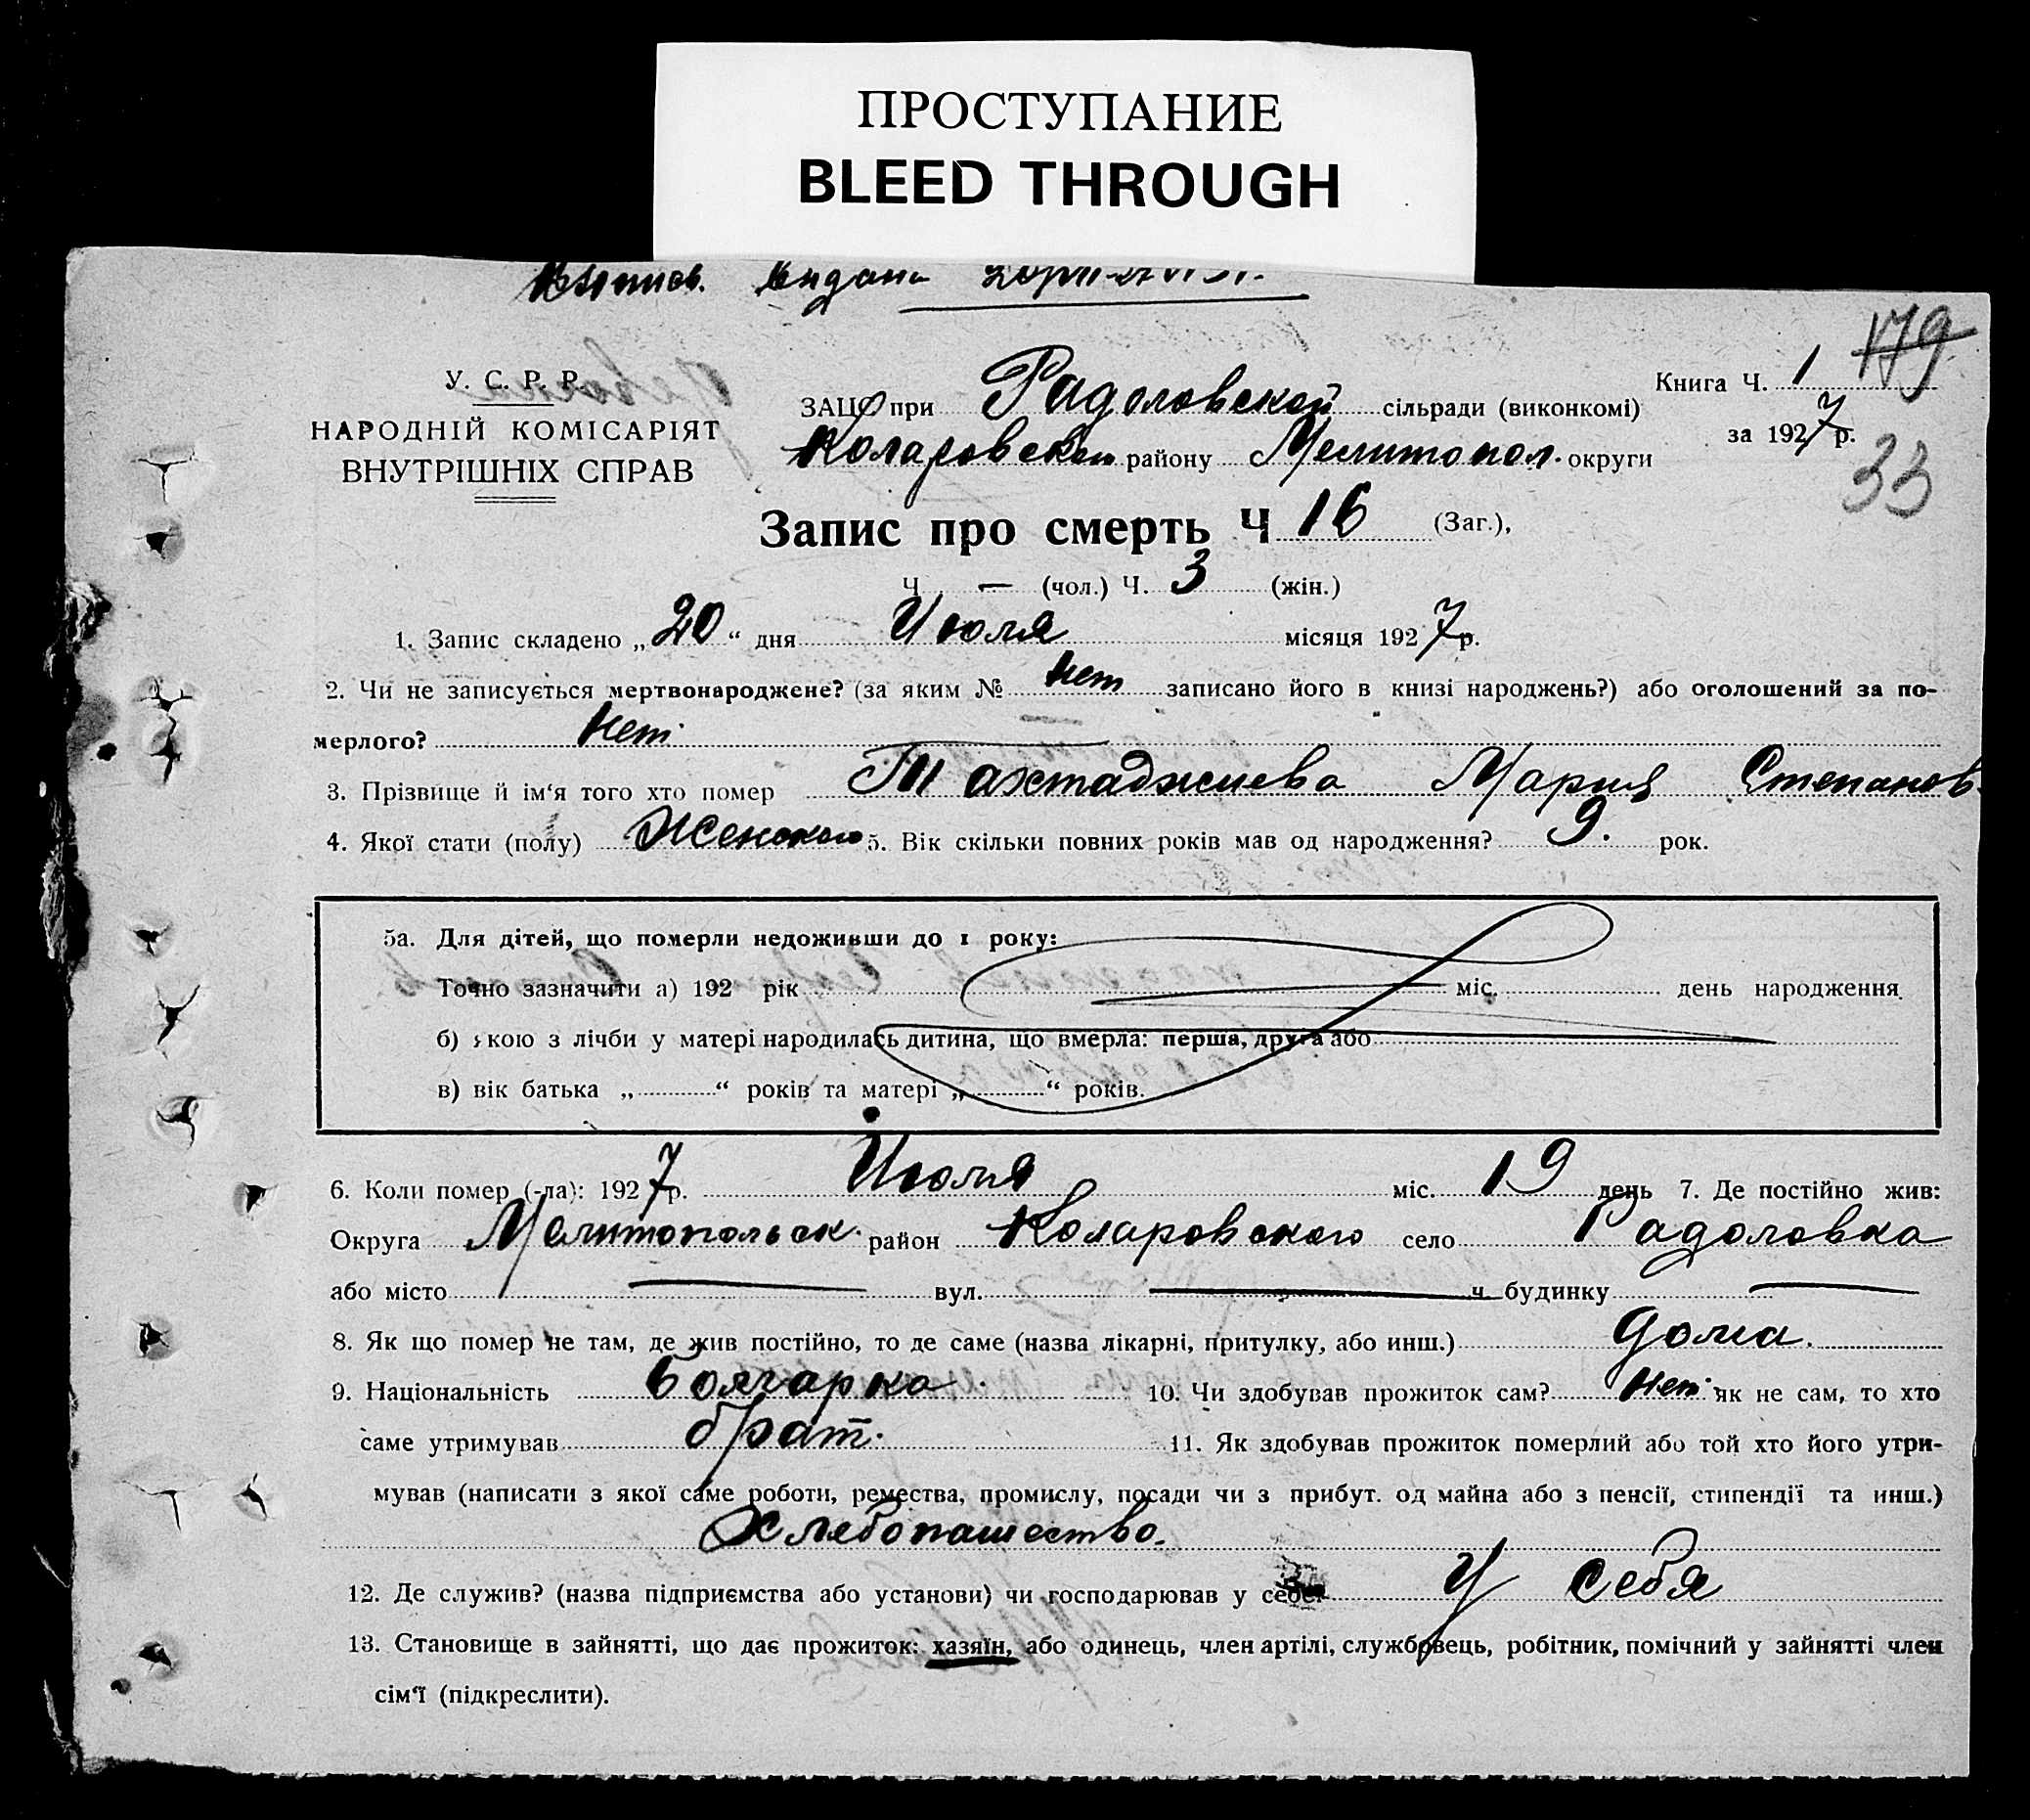 ПРОСТУПАНИЕ
BLEED THROUGH
179
У. С. Р. Р.
НАРОДНІЙ КОМІСАРІЯТ
ВНУТРІШНІХ СПРАВ
Книга Ч. 1
ЗАЦС при Радоловской сільради (виконкомі)
за 1927 р.
Коларовского району Мелитопол. округи
33
Запис про смерть Ч 16 (Заг.),
Ч — (чол.) Ч. 3 (жін.)
1. Запис складено „20“ дня Июля місяця 1927 р.
2. Чи не записується мертвонароджене? (за яким № нет записано його в книзі народжень?) або оголошений за по-
мерлого? Нет.
3. Прізвище й ім‘я того хто помер Тахтаджиева Мария Степанов.
4. Якої стати (полу) Женского 5. Вік скільки повних років мав од народження? 9. рок.
5а. Для дітей, що померли недоживши до 1 року:
Точно зазначити а) 192 рік міс. день народження.
б) якою з лічби у матері народилась дитина, що вмерла: перша, друга або
в) вік батька „ “ років та матері „ “ років.
6. Коли помер (-ла): 1927 р. Июля міс. 19 день 7. Де постійно жив:
Округа Мелитопольск. район Коларовского село Радоловка
або місто — вул. — ч. будинку —
8. Як що помер не там, де жив постійно, то де саме (назва лікарні, притулку, або инш.) дома.
9. Національність Болгарка. 10. Чи здобував прожиток сам? Нет. як не сам, то хто
саме утримував брат. 11. Як здобував прожиток померлий або той хто його утри-
мував (написати з якої саме роботи, ремества, промислу, посади чи з прибут. од майна або з пенсії, стипендії та инш.)
Хлебопашество.
12. Де служив? (назва підприємства або установи) чи господарював у себе У себя
13. Становище в зайнятті, що дає прожиток: хазяїн, або одинець, член артілі, службовець, робітник, помічний у зайнятті член
сім‘ї (підкреслити).